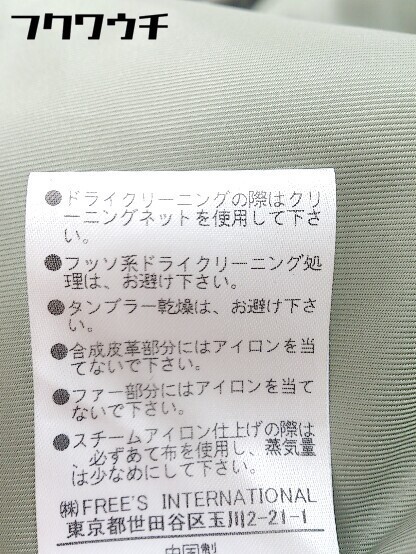 フクワウチ
●ドライクリーニングの際はクリ
ーニングネットを使用して下さ
い。
●フッソ系ドライクリーニング処
理は、お避け下さい。
●タンブラー乾燥は、お避け下さ
い。
●合成皮革部分にはアイロンを当
てないで下さい。
●ファー部分にはアイロンを当て
ないで下さい。
●スチームアイロン仕上げの際は
、必ずあて布を使用し、蒸気量
は少なめにして下さい。
㈱FREE'S INTERNATIONAL
東京都世田谷区玉川2-21-1
中国製